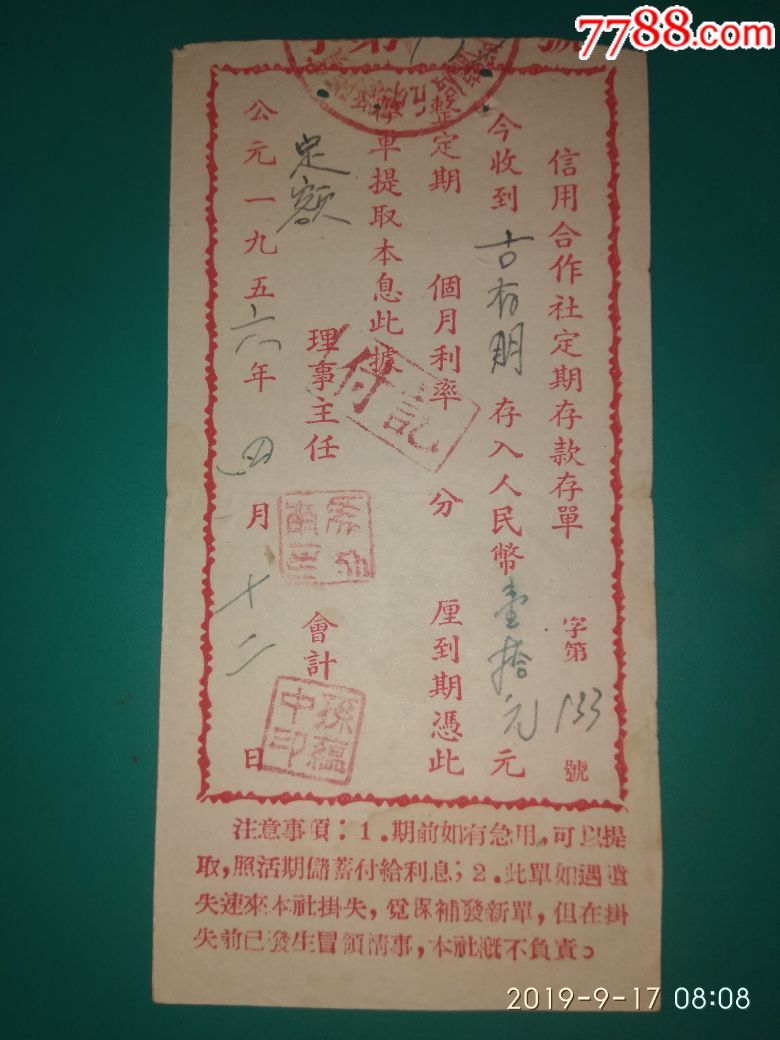 7788.com
字第 號
信用合作社定期存款存單 字第133號
今收到古有朋存入人民幣壹拾元元
整定期 個月利率 分 厘到期憑此
存單提取本息此據
定額
付訖
理事主任 會計
孫蘊中印
公元一九五六年四月十二日
注意事項：1.期前如有急用,可以提
取,照活期儲蓄付給利息;2.此單如遇遺
失速來本社掛失,覓保補發新單,但在掛
失前已發生冒領情事,本社概不負責。
2019-9-17 08:08